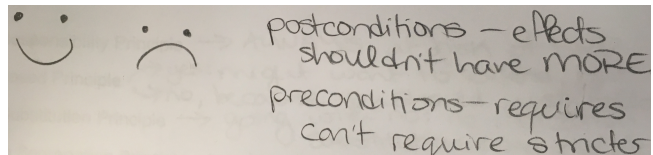 postconditions – effects
shouldn't have MORE
preconditions – requires
can't require stricter